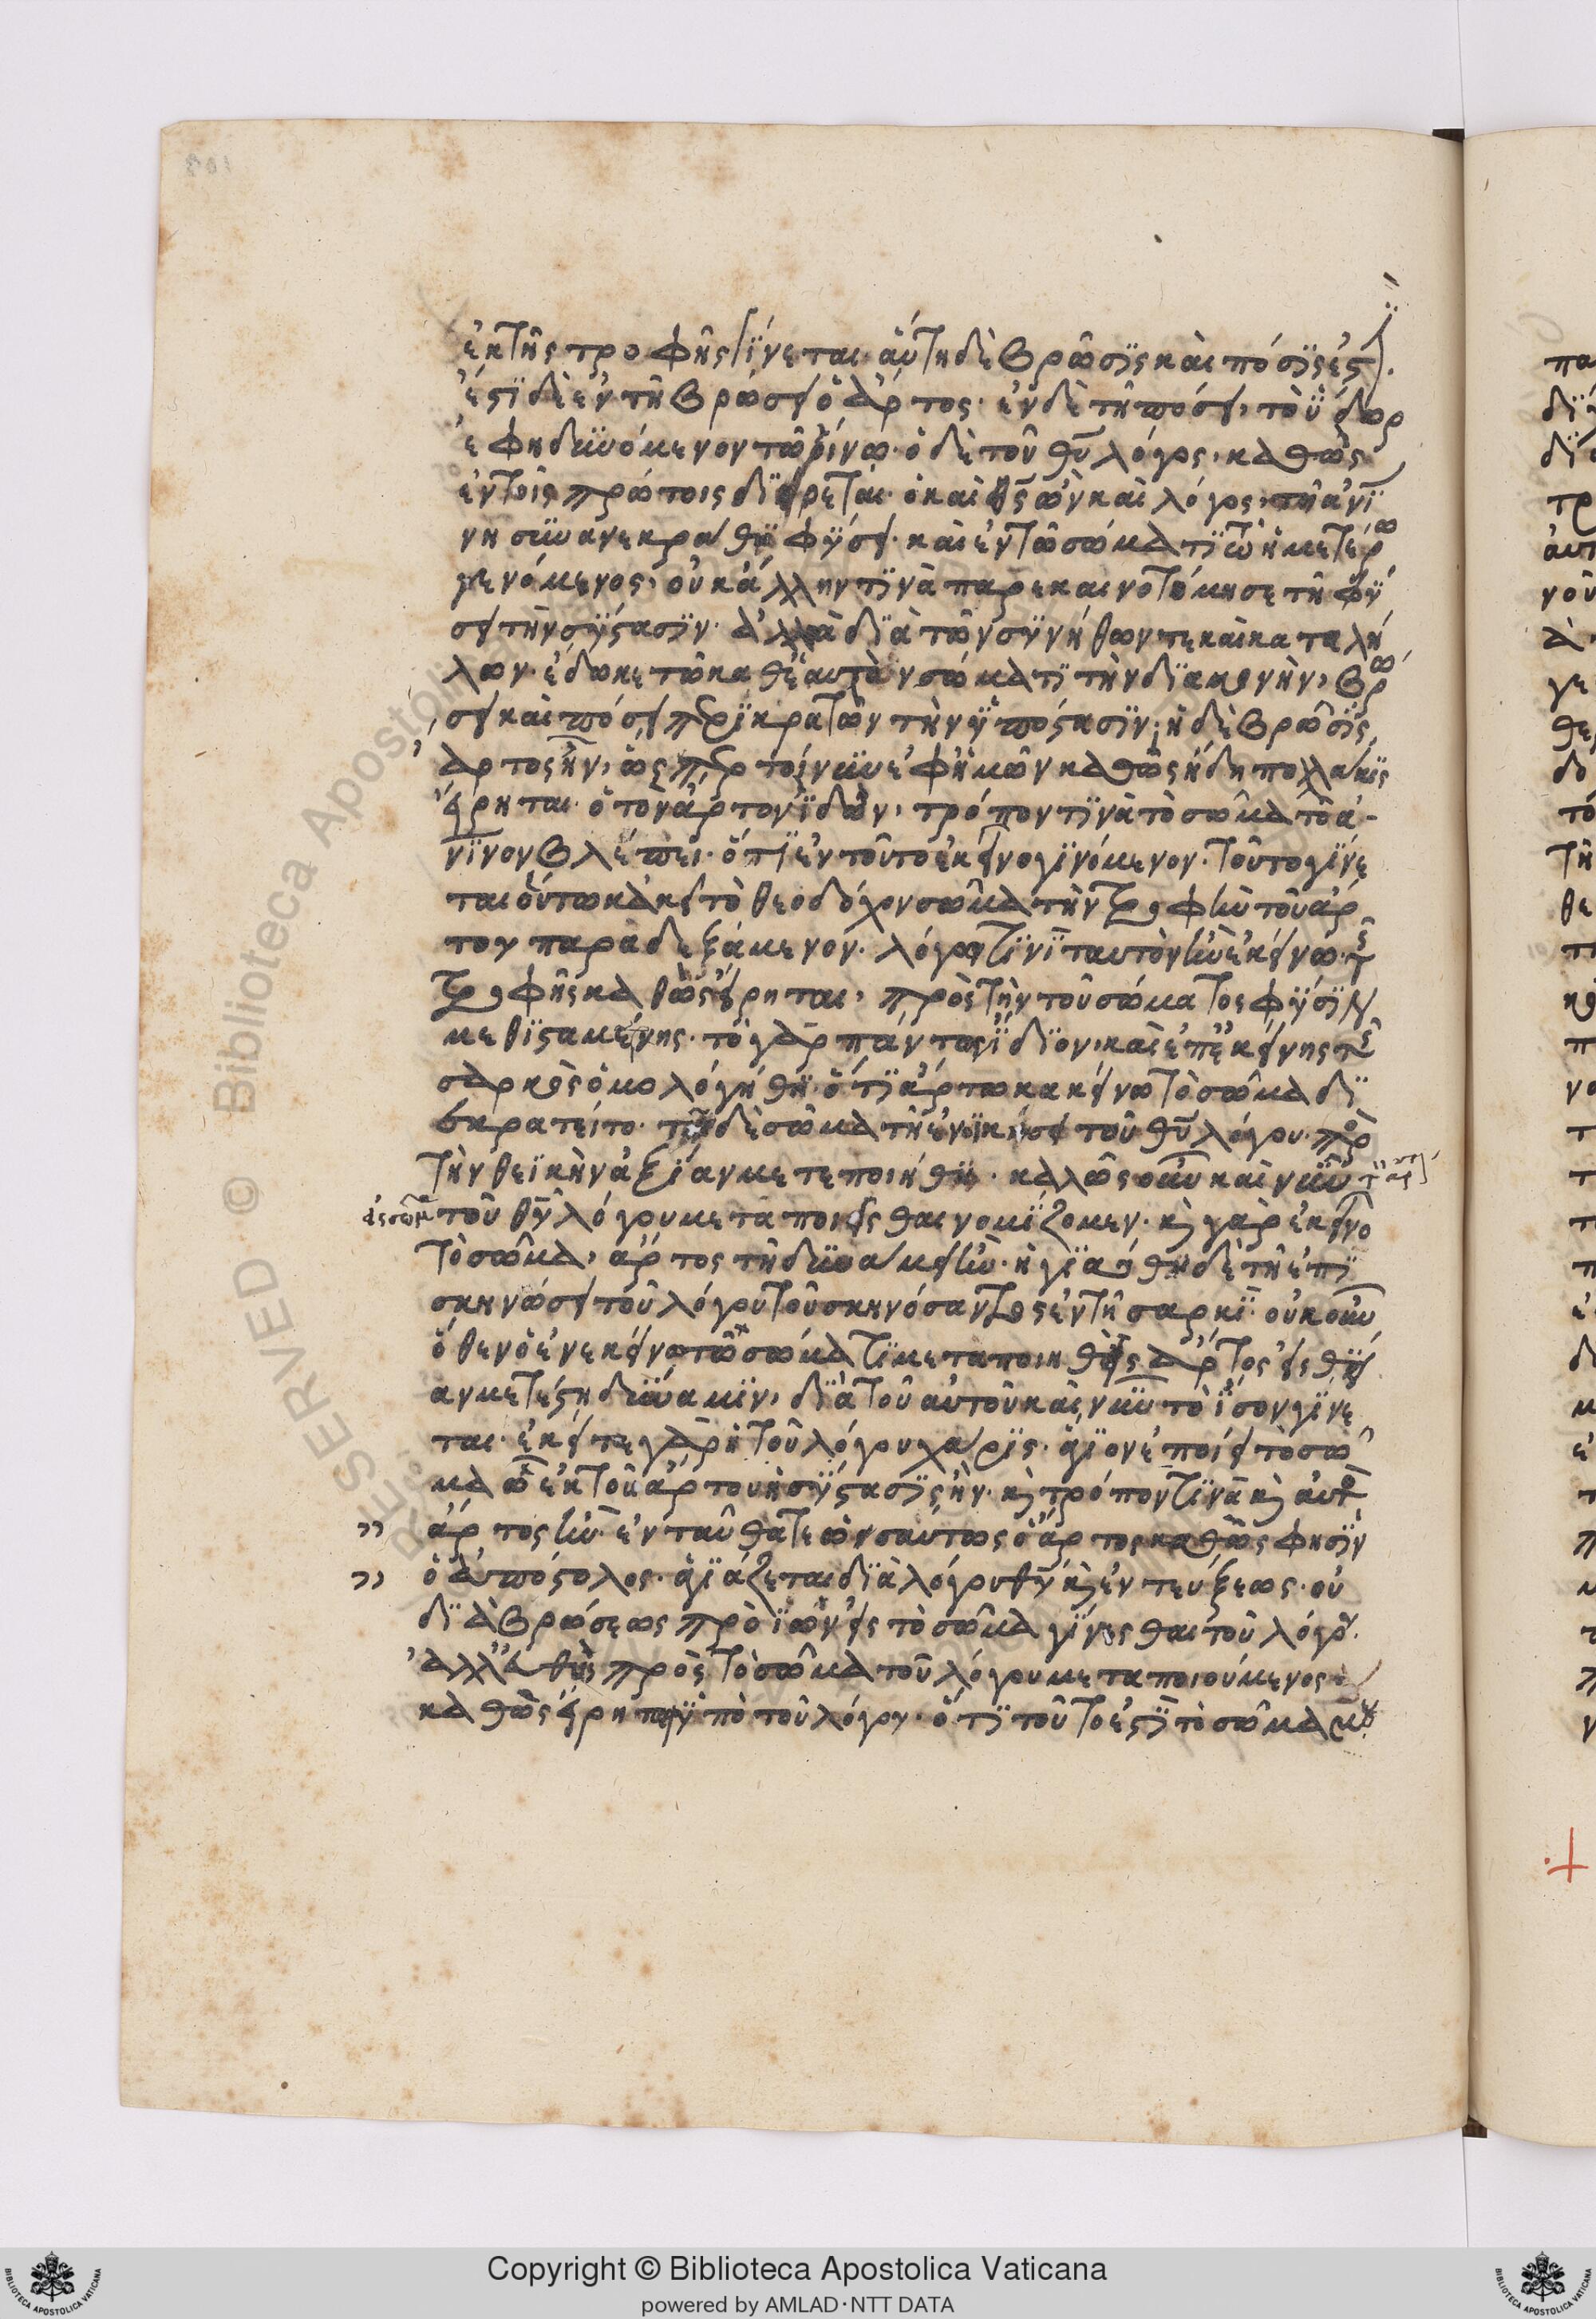 ἐκ τῆς τροφῆς γίνεται· αὕτη δὲ βρῶσϊς καὶ πόσϊς ἐστ
ἔστϊ δὲ ἐν τῇ βρώσει ὁ ἄρτος· ἐν δὲ τῇ πόσει, τὸ ὕδωρ
ἐφηδϋνόμενον τῶ οἴνω· ὁ δὲ τοῦ θῡ λόγος, καθὼς
ἐν τοῖς πρώτοις διείρεται· ὁ καὶ θς̄ ὢν καὶ λόγος, τῆ ἀνϊ̄
νη συνανεκράθη φΰσει· καὶ ἐν τῶ σώματϊ τῶ ἡμετέρω
γενόμενος, οὐκ ἄλλην τϊνὰ παρεκαινοτόμησε τῆ φΰ
σει τὴν σΰστασϊν· ἀλλὰ δϊὰ τῶν σϋνήθων τε καὶ καταλή
λων· ἔδωκε τῶ καθ' ἑαυτὸν σώματϊ τὴν δϊαμονὴν, βρώ
σει καὶ πόσει περϊκρατῶν τὴν ὑπόστασϊν· ἡ δὲ βρῶσϊς,
ἄρτος ἦν, ὥσπερ τοίνυν ἐφ' ἡμῶν καθὼς ἤδη πολάκϊς
εἴρηται· ὁ τὸν ἄρτον ἰδὼν, τρόπον τϊνὰ τὸ σῶμα τὸ ἀ-
νϊ̄νον βλέπει· ὅτϊ ἐν τοῦτο ἐκεῖνο γϊνόμενον· τοῦτο γΐνε
ται οὕτω κἀκεῖ τὸ θεοδόχον σῶμα τὴν τροφὴν τοῦ ἄρ
του παραδεξάμενον· λόγω τϊνϊ ταυτὸν ἦν ἐκείνω· τῆς
τροφῆς καθὼς εἴρηται, πρὸς τὴν τοῦ σώματος φΰσϊν
μεθϊσταμένης· τὸ γὰρ πάντας ἴδϊον, καὶ ἐπ' ἐκείνης τῆς
σαρκὸς ὁμολογήθη· ὅτϊ ἄρτω κακείνω τὸ σῶμα δϊ
εκρατεῖτο· τὸ δὲ σῶμα τῆ ἐνοικήσει τοῦ θῡ λόγου πρὸς
τὴν θεϊκὴν ἀξίαν μετεποιήθη· καλῶς οὖν καὶ νῦν
εἰς σῶμα τοῦ θῡ λόγου μεταποιεῖσθαι νομΐζομεν· κ̀ γὰρ ἐκεῖνο
τὸ σῶμα, ἄρτος τῆ δϋνάμει ἦν· ἡγϊάσθη δὲ τῆ ἐπϊ
σκηνώσει τοῦ λόγου τοῦ σκηνόσαντος ἐν τῆ σαρκϊ· οὐκοῦν
ὅθεν ὁ ἐν ἐκείνω τῶ σώματϊ μεταποιηθεὶς ἄρτος εἰς θεί
αν μετέστη δΰναμϊν, δϊὰ τοῦ αὐτοῦ καὶ νῦν τὸ ἴσον γΐνε
ται· ἐκεῖ τε γὰρ ἡ τοῦ λόγου χάρϊς· ἅγϊον ἐποίει τὸ σῶ
μα ὧ ἐκ τοῦ ἄρτου ἡ σΰστασϊς ἦν· κ̀ τρόπον τϊνὰ κ̀ αὐτὸ
ἄρτος ἦν· ἐνταῦθα τε ὡσαύτως ὁ ἄρτος καθὼς φησϊν
ὁ ἀπόστολος· ἁγϊάζεται δϊὰ λόγου θῡ κ̀ ἐντεύξεως· οὐ
δϊὰ βρώσεως προϊὼν εἰς τὸ σῶμα γίνεσθαι τοῦ λόγου·
ἀλλ' εὐθὺς πρὸς τὸ σῶμα τοῦ λόγου μεταποιούμενος
καθὼς εἴρηται ὑπὸ τοῦ λόγου· ὅτϊ τοῦτο ἐστϊ τὸ σῶμα μου